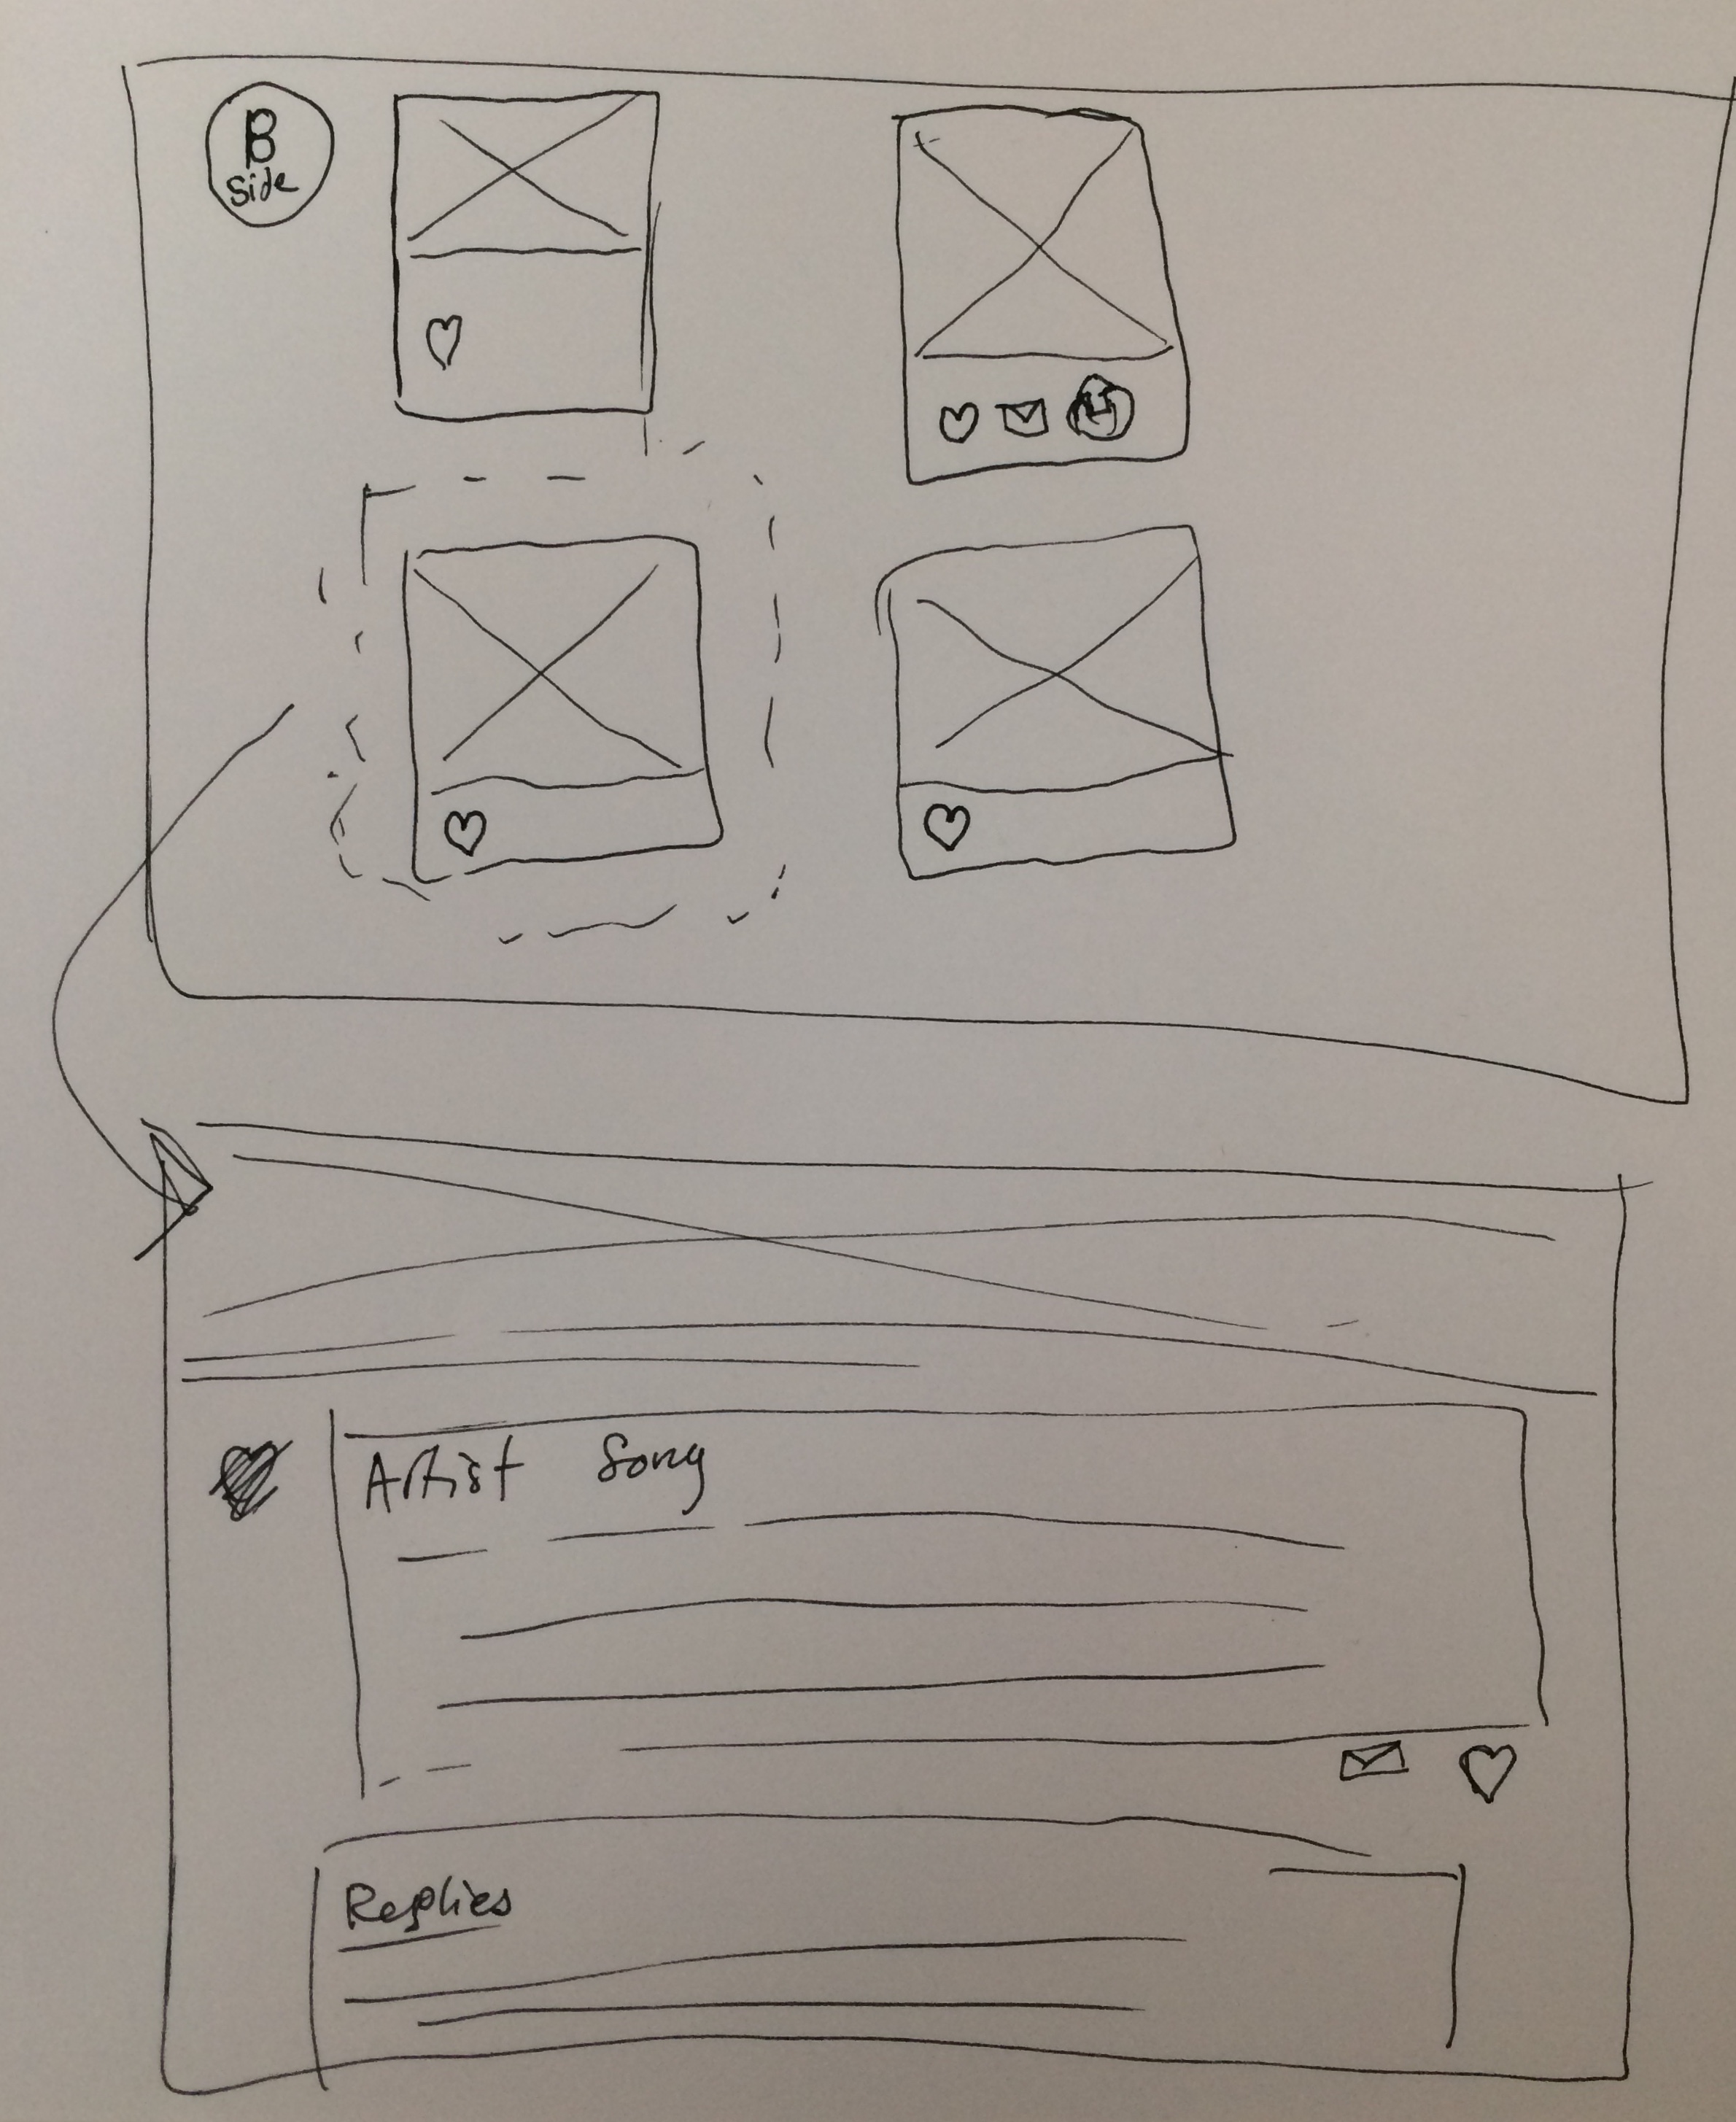 B
Side
Artist Song
Replies